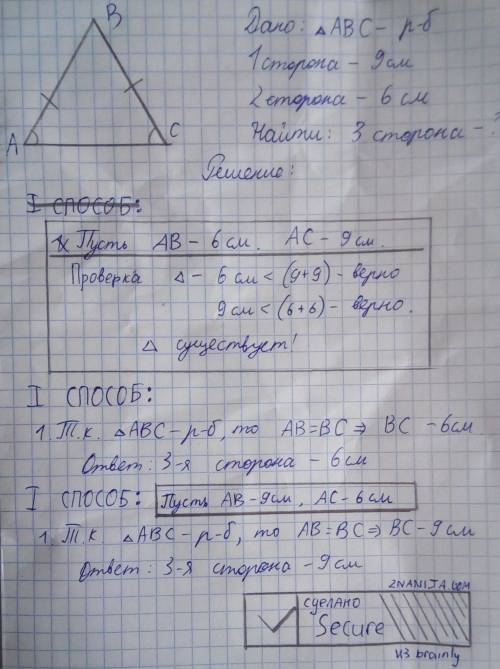 B
A
C
Дано: △ABC - р-б
1 сторона - 9 см
2 сторона - 6 см
Найти: 3 сторона - ?
Решение:
I СПОСОБ:
Пусть AB - 6 см. AC - 9 см.
Проверка △ - 6 см < (9+9) - верно
9 см < (6+6) - верно.
△ существует!
I СПОСОБ:
1. Т.к. △ABC - р-б, то AB = BC ⇒ BC - 6 см
Ответ: 3-я сторона - 6 см
I СПОСОБ: Пусть AB - 9 см, AC - 6 см
1. Т.к. △ABC - р-б, то AB = BC ⇒ BC - 9 см
Ответ: 3-я сторона - 9 см
ZNANIJA.COM
СДЕЛАНО
Secure
ИЗ brainly